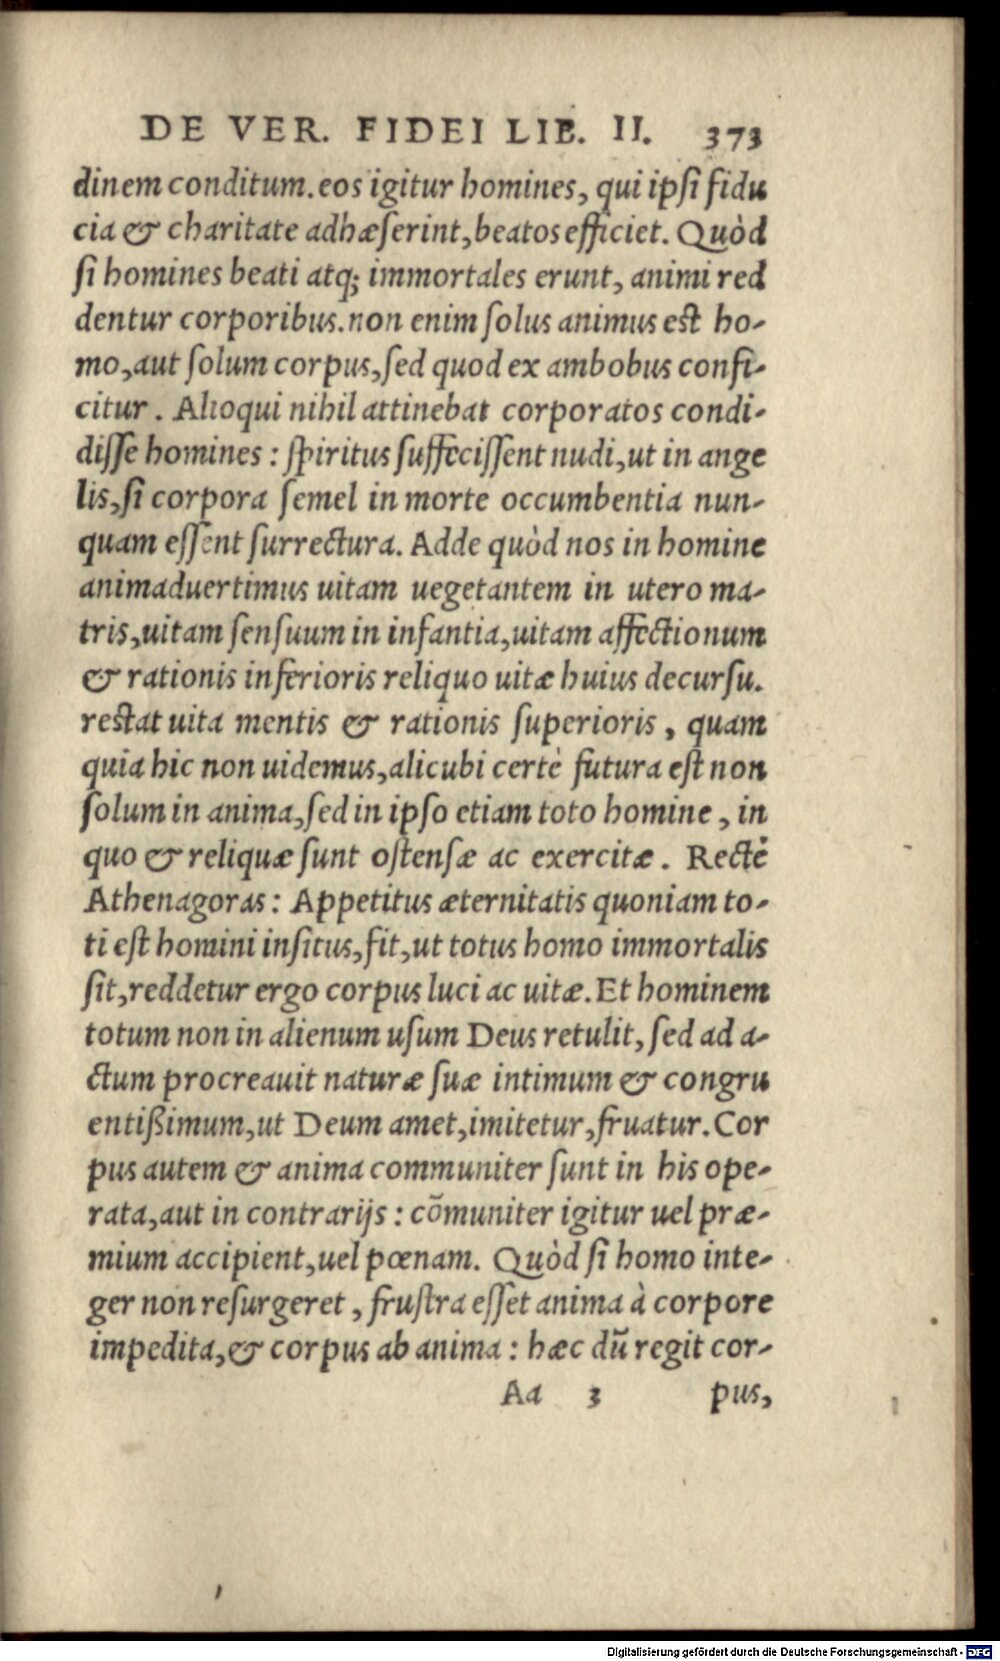 DE VER. FIDEI LIB. II. 373
dinem conditum. eos igitur homines, qui ipſi fidu
cia & charitate adhæſerint, beatos efficiet. Quòd
ſi homines beati atq; immortales erunt, animi red
dentur corporibus. non enim ſolus animus eſt ho-
mo, aut ſolum corpus, ſed quod ex ambobus confi-
citur. Alioqui nihil attinebat corporatos condi-
diſſe homines: ſpiritus ſuffeciſſent nudi, ut in ange
lis, ſi corpora ſemel in morte occumbentia nun-
quam eſſent ſurrectura. Adde quòd nos in homine
animaduertimus uitam uegetantem in utero ma-
tris, uitam ſenſuum in infantia, uitam affectionum
& rationis inferioris reliquo uitæ huius decurſu.
reſtat uita mentis & rationis ſuperioris, quam
quia hic non uidemus, alicubi certè futura eſt non
ſolum in anima, ſed in ipſo etiam toto homine, in
quo & reliquæ ſunt oſtenſæ ac exercitæ. Rectè
Athenagoras: Appetitus æternitatis quoniam to-
ti eſt homini inſitus, fit, ut totus homo immortalis
ſit, reddetur ergo corpus luci ac uitæ. Et hominem
totum non in alienum uſum Deus retulit, ſed ad a-
ctum procreauit naturæ ſuæ intimum & congru
entißimum, ut Deum amet, imitetur, fruatur. Cor
pus autem & anima communiter ſunt in his ope-
rata, aut in contrarijs: cōmuniter igitur uel præ-
mium accipient, uel pœnam. Quòd ſi homo inte-
ger non reſurgeret, fruſtra eſſet anima à corpore
impedita, & corpus ab anima: hæc dū regit cor-
Aa 3 pus,
Digitalisierung gefördert durch die Deutsche Forschungsgemeinschaft - DFG